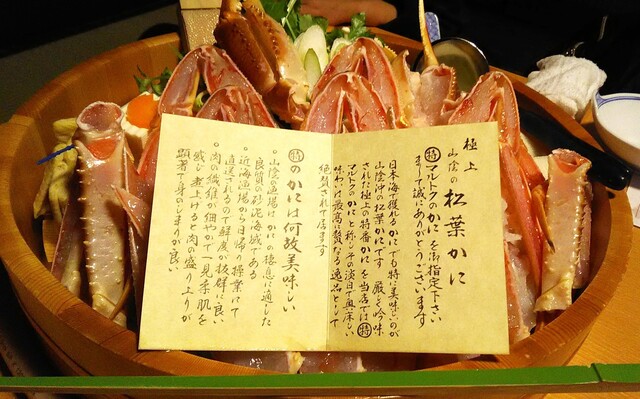 極上
山陰の 松葉かに
㊕マルトクのかにを御指定下さい
まして誠にありがとうございます
日本海で獲れるかにでも特に美味しいのが
山陰沖の松葉かにです 厳しく吟味
された極上の特番かにを当店では㊕
マルトクのかにと称しその淡白で奥床しい
味わいは最高に贅なる逸品として
絶賛されて居ます
㊕のかには何故美味しい
○山陰漁場はかにの棲息に適した
良質の砂泥海域である
○近海漁場から日帰り操業にて
直送されるので鮮度が抜群に良い
○肉の繊維が細やかで一見柔肌を
感じ煮上げると肉の盛り上りが
顕著で身のしまりが良い